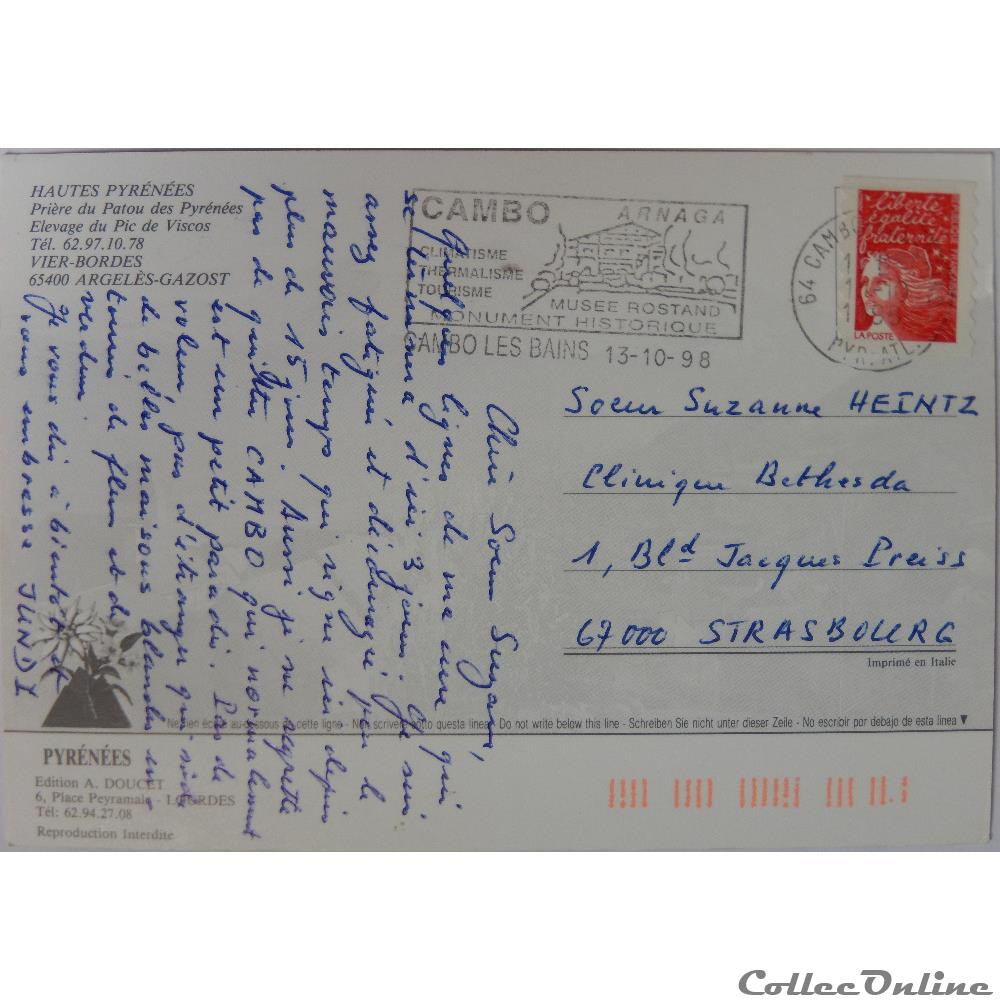 HAUTES PYRÉNÉES
Prière du Patou des Pyrénées
Elevage du Pic de Viscos
Tél. 62.97.10.78
VIER-BORDES
65400 ARGELÈS-GAZOST
CAMBO ARNAGA
CLIMATISME
THERMALISME
TOURISME
MUSEE ROSTAND
MONUMENT HISTORIQUE
CAMBO LES BAINS 13-10-98
64 CAMBO
PYR-ATL
liberté
égalité
fraternité
LA POSTE
Chère Soeur Suzanne,
Quelques lignes de ma cure qui
se terminera d'ici 3 jours. Je suis
assez fatiguée et découragée par le
mauvais temps qui règne ici depuis
plus de 15 jours. Aussi je ne regrette
pas de quitter CAMBO qui normalement
est un petit paradis. Pas de
voleur, pas d'étranger que
de belles maisons blanches en-
tourées de fleurs et de
verdure.
Je vous dis à bientôt et
vous embrasse JUNDT
Soeur Suzanne HEINTZ
Clinique Bethesda
1, Bld Jacques Preiss
67000 STRASBOURG
Imprimé en Italie
Ne rien écrire au-dessous de cette ligne - Non scrivere sotto questa linea - Do not write below this line - Schreiben Sie nicht unter dieser Zeile - No escribir por debajo de esta linea ▼
PYRÉNÉES
Edition A. DOUCET
6, Place Peyramale - LOURDES
Tél: 62.94.27.08
Reproduction Interdite
CollecOnline